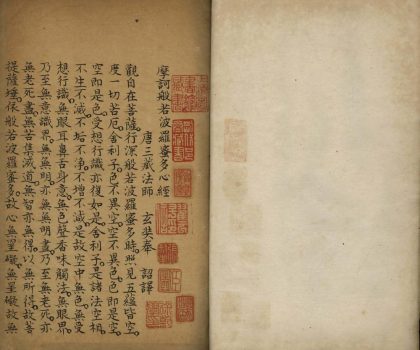 摩訶般若波羅蜜多心經
唐三藏法師 玄奘奉 詔譯
觀自在菩薩行深般若波羅蜜多時照見五蘊皆空
度一切苦厄舍利子色不異空空不異色色即是空
空即是色受想行識亦復如是舍利子是諸法空相
不生不滅不垢不淨不增不減是故空中無色無受
想行識無眼耳鼻舌身意無色聲香味觸法無眼界
乃至無意識界無無明亦無無明盡乃至無老死亦
無老死盡無苦集滅道無智亦無得以無所得故菩
提薩埵依般若波羅蜜多故心無罣礙無罣礙故無